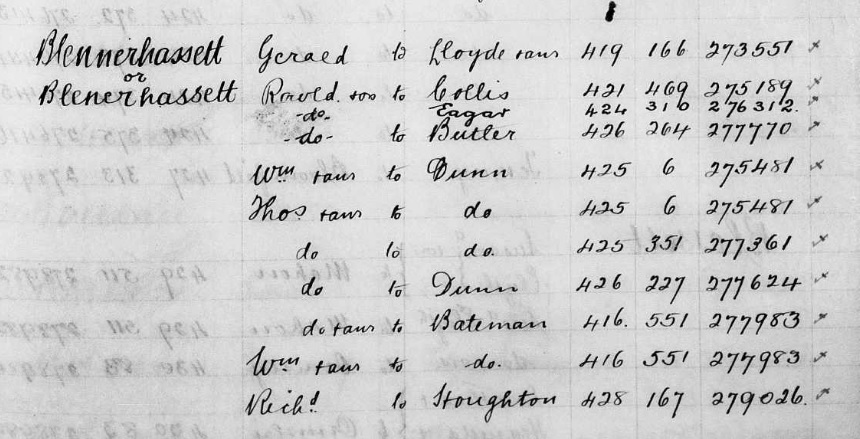 Blennerhassett Gerald to Lloyde & ans 419 166 273551
or
Blenerhassett Rowld. & os to Collis 421 469 275189
-do- Eagar 424 310 276312.
-do- to Butler 426 264 277770
Wm & ans to Dunn 425 6 275481
Thos & ans to do 425 6 275481
do to do. 425 351 277361
do to Dunn 426 227 277624
do & ans to Bateman 416. 551 277983
Wm & ans to do. 416 551 277983
Richd. to Stoughton 428 167 279026.